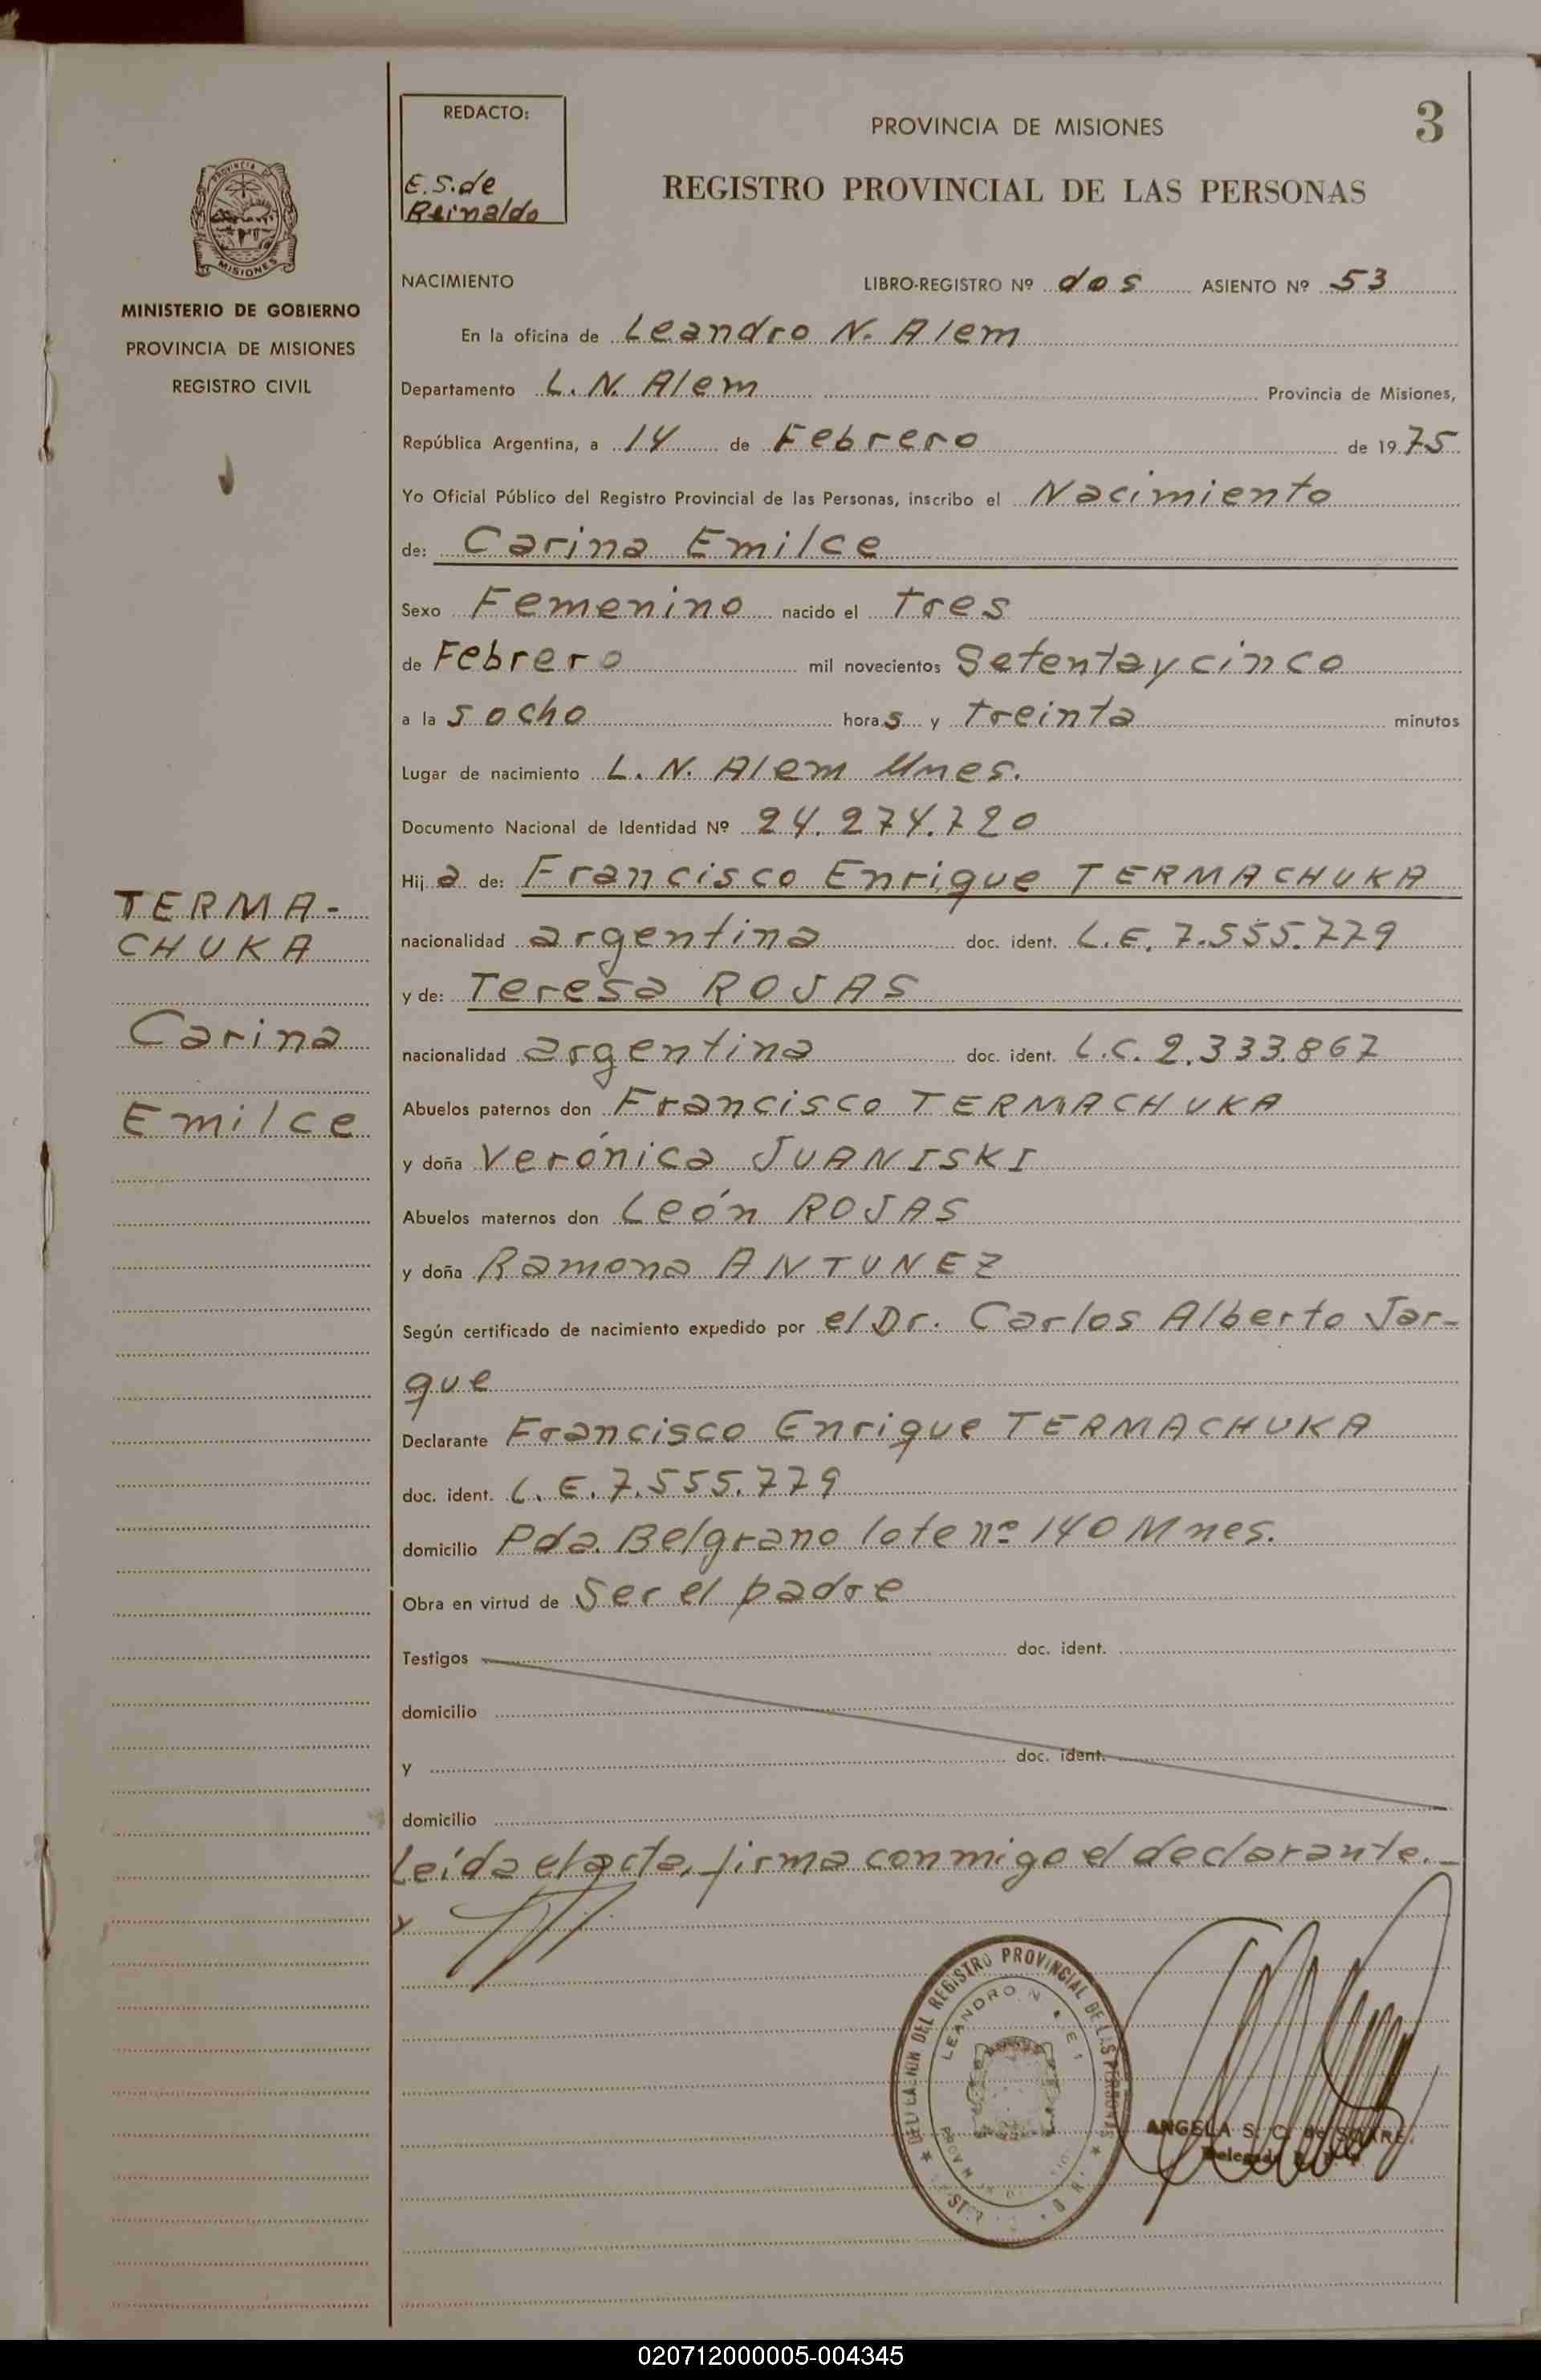 REDACTO:
E. S. de
Reinaldo
PROVINCIA DE MISIONES
3
REGISTRO PROVINCIAL DE LAS PERSONAS
PROVINCIA DE
MISIONES
MINISTERIO DE GOBIERNO
PROVINCIA DE MISIONES
REGISTRO CIVIL
NACIMIENTO LIBRO-REGISTRO Nº dos ASIENTO Nº 53
En la oficina de Leandro N. Alem
Departamento L. N. Alem Provincia de Misiones,
República Argentina, a 14 de Febrero de 1975
Yo Oficial Público del Registro Provincial de las Personas, inscribo el Nacimiento
de: Carina Emilce
Sexo Femenino nacido el tres
de Febrero mil novecientos Setenta y cinco
a la s ocho horas y treinta minutos
Lugar de nacimiento L. N. Alem Mnes.
Documento Nacional de Identidad Nº 24.274.720
Hij a de: Francisco Enrique TERMACHUKA
nacionalidad argentina doc. ident. L.E. 7.555.779
y de: Teresa ROJAS
nacionalidad argentina doc. ident. L.C. 2.333.867
Abuelos paternos don Francisco TERMACHUKA
y doña Verónica JUANISKI
Abuelos maternos don León ROJAS
y doña Ramona ANTUNEZ
Según certificado de nacimiento expedido por el Dr. Carlos Alberto Jar-
que
Declarante Francisco Enrique TERMACHUKA
doc. ident. L.E. 7.555.779
domicilio Pda. Belgrano lote nº 140 Mnes.
Obra en virtud de Ser el padre
Testigos doc. ident.
domicilio
y doc. ident.
domicilio
Leída el acta, firma conmigo el declarante.-
y
TERMA-
CHUKA
Carina
Emilce
DEL REGISTRO PROVINCIAL DE LAS PERSONAS
LEANDRO N
ANGELA S. C. de
020712000005-004345